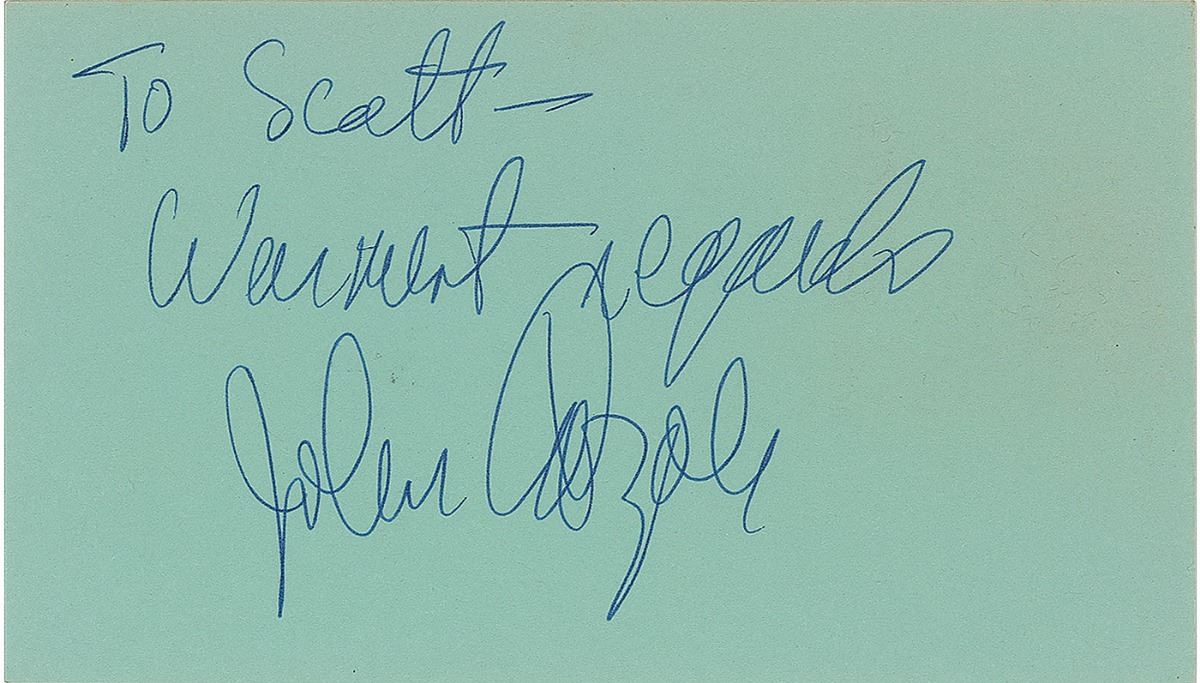 To Scott—
Warmest regards
John Cazale